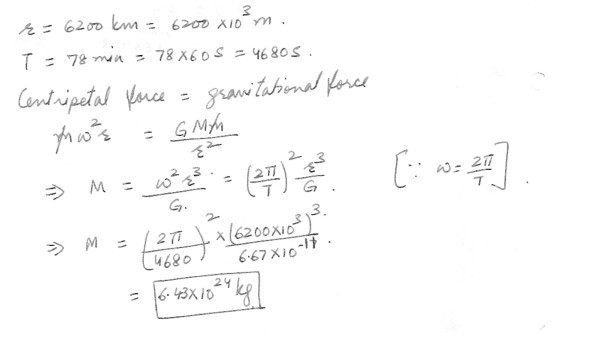 r = 6200 km = 6200 × 10³ m.
T = 78 min = 78×60 s = 4680 s.
Centripetal force = gravitational force
mω²r = GMm/r²
⇒ M = ω²r³/G. = (2π/T)² r³/G. [∵ ω = 2π/T].
⇒ M = (2π/4680)² × (6200×10³)³/6.67×10⁻¹¹.
= 6.43×10²⁴ kg